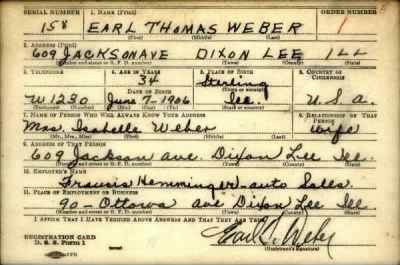 SERIAL NUMBER 1. NAME (Print) ORDER NUMBER
158 EARL THOMAS WEBER 1
(First) (Middle) (Last)
2. ADDRESS (Print)
609 JACKSON AVE DIXON LEE ILL
(Number and street or R. F. D. number) (Town) (County) (State)
3. TELEPHONE 4. AGE IN YEARS 5. PLACE OF BIRTH 6. COUNTRY OF CITIZENSHIP
34 Sterling
DATE OF BIRTH (Town or county)
W 1230 June 7-1906 Ill. U.S.A.
(Exchange) (Number) (Mo.) (Day) (Yr.) (State or country)
7. NAME OF PERSON WHO WILL ALWAYS KNOW YOUR ADDRESS 8. RELATIONSHIP OF THAT PERSON
Mrs. Isabelle Weber wife
(Mr., Mrs., Miss) (First) (Middle) (Last)
9. ADDRESS OF THAT PERSON
609 Jackson ave. Dixon Lee Ill.
(Number and street or R. F. D. number) (Town) (County) (State)
10. EMPLOYER'S NAME
Francis Hemminger-auto Sales.
11. PLACE OF EMPLOYMENT OR BUSINESS
90-Ottawa ave Dixon Lee Ill.
(Number and street or R. F. D. number) (Town) (County) (State)
I AFFIRM THAT I HAVE VERIFIED ABOVE ANSWERS AND THAT THEY ARE TRUE.
REGISTRATION CARD
D. S. S. Form 1 Earl T. Weber
(Registrant's signature)